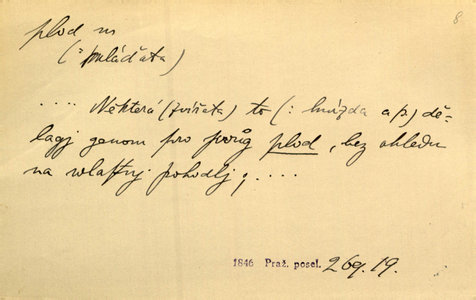 8
plod m
(: mláďata)
.... Některá (zvířata) to (: hnízda a p.) dě-
lagj genom pro swůg plod, bez ohledu
na wlastnj pohodlj; ....
1846 Praž. posel. 269.19.